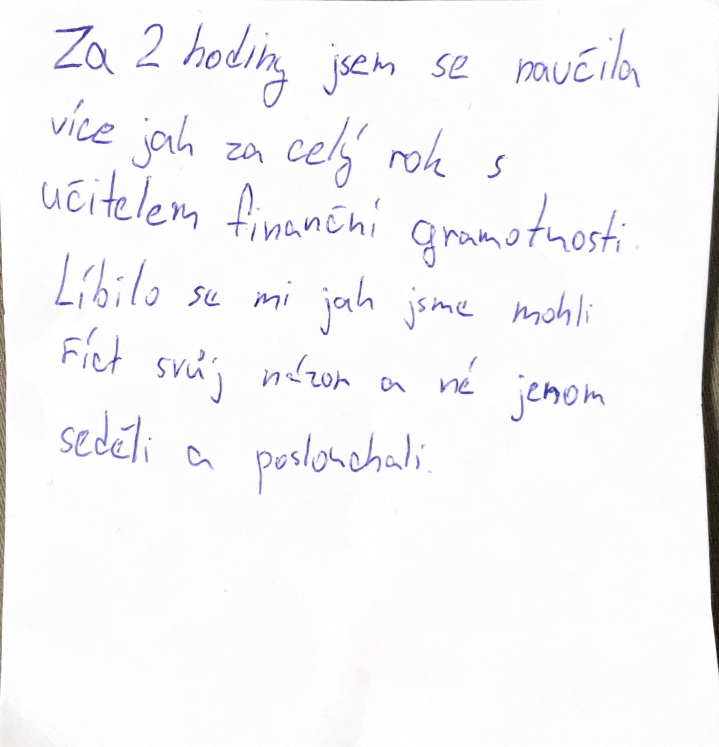 Za 2 hodiny jsem se naučila
více jak za celý rok s
učitelem finanční gramotnosti.
Líbilo se mi jak jsme mohli
říct svůj názor a né jenom
seděli a poslouchali.